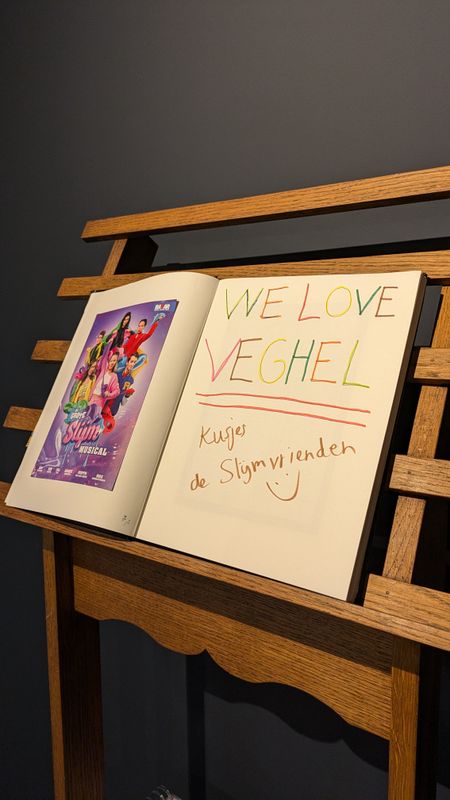 Slijm
MUSICAL
WE LOVE
VEGHEL
Kusjes
de Slijmvrienden